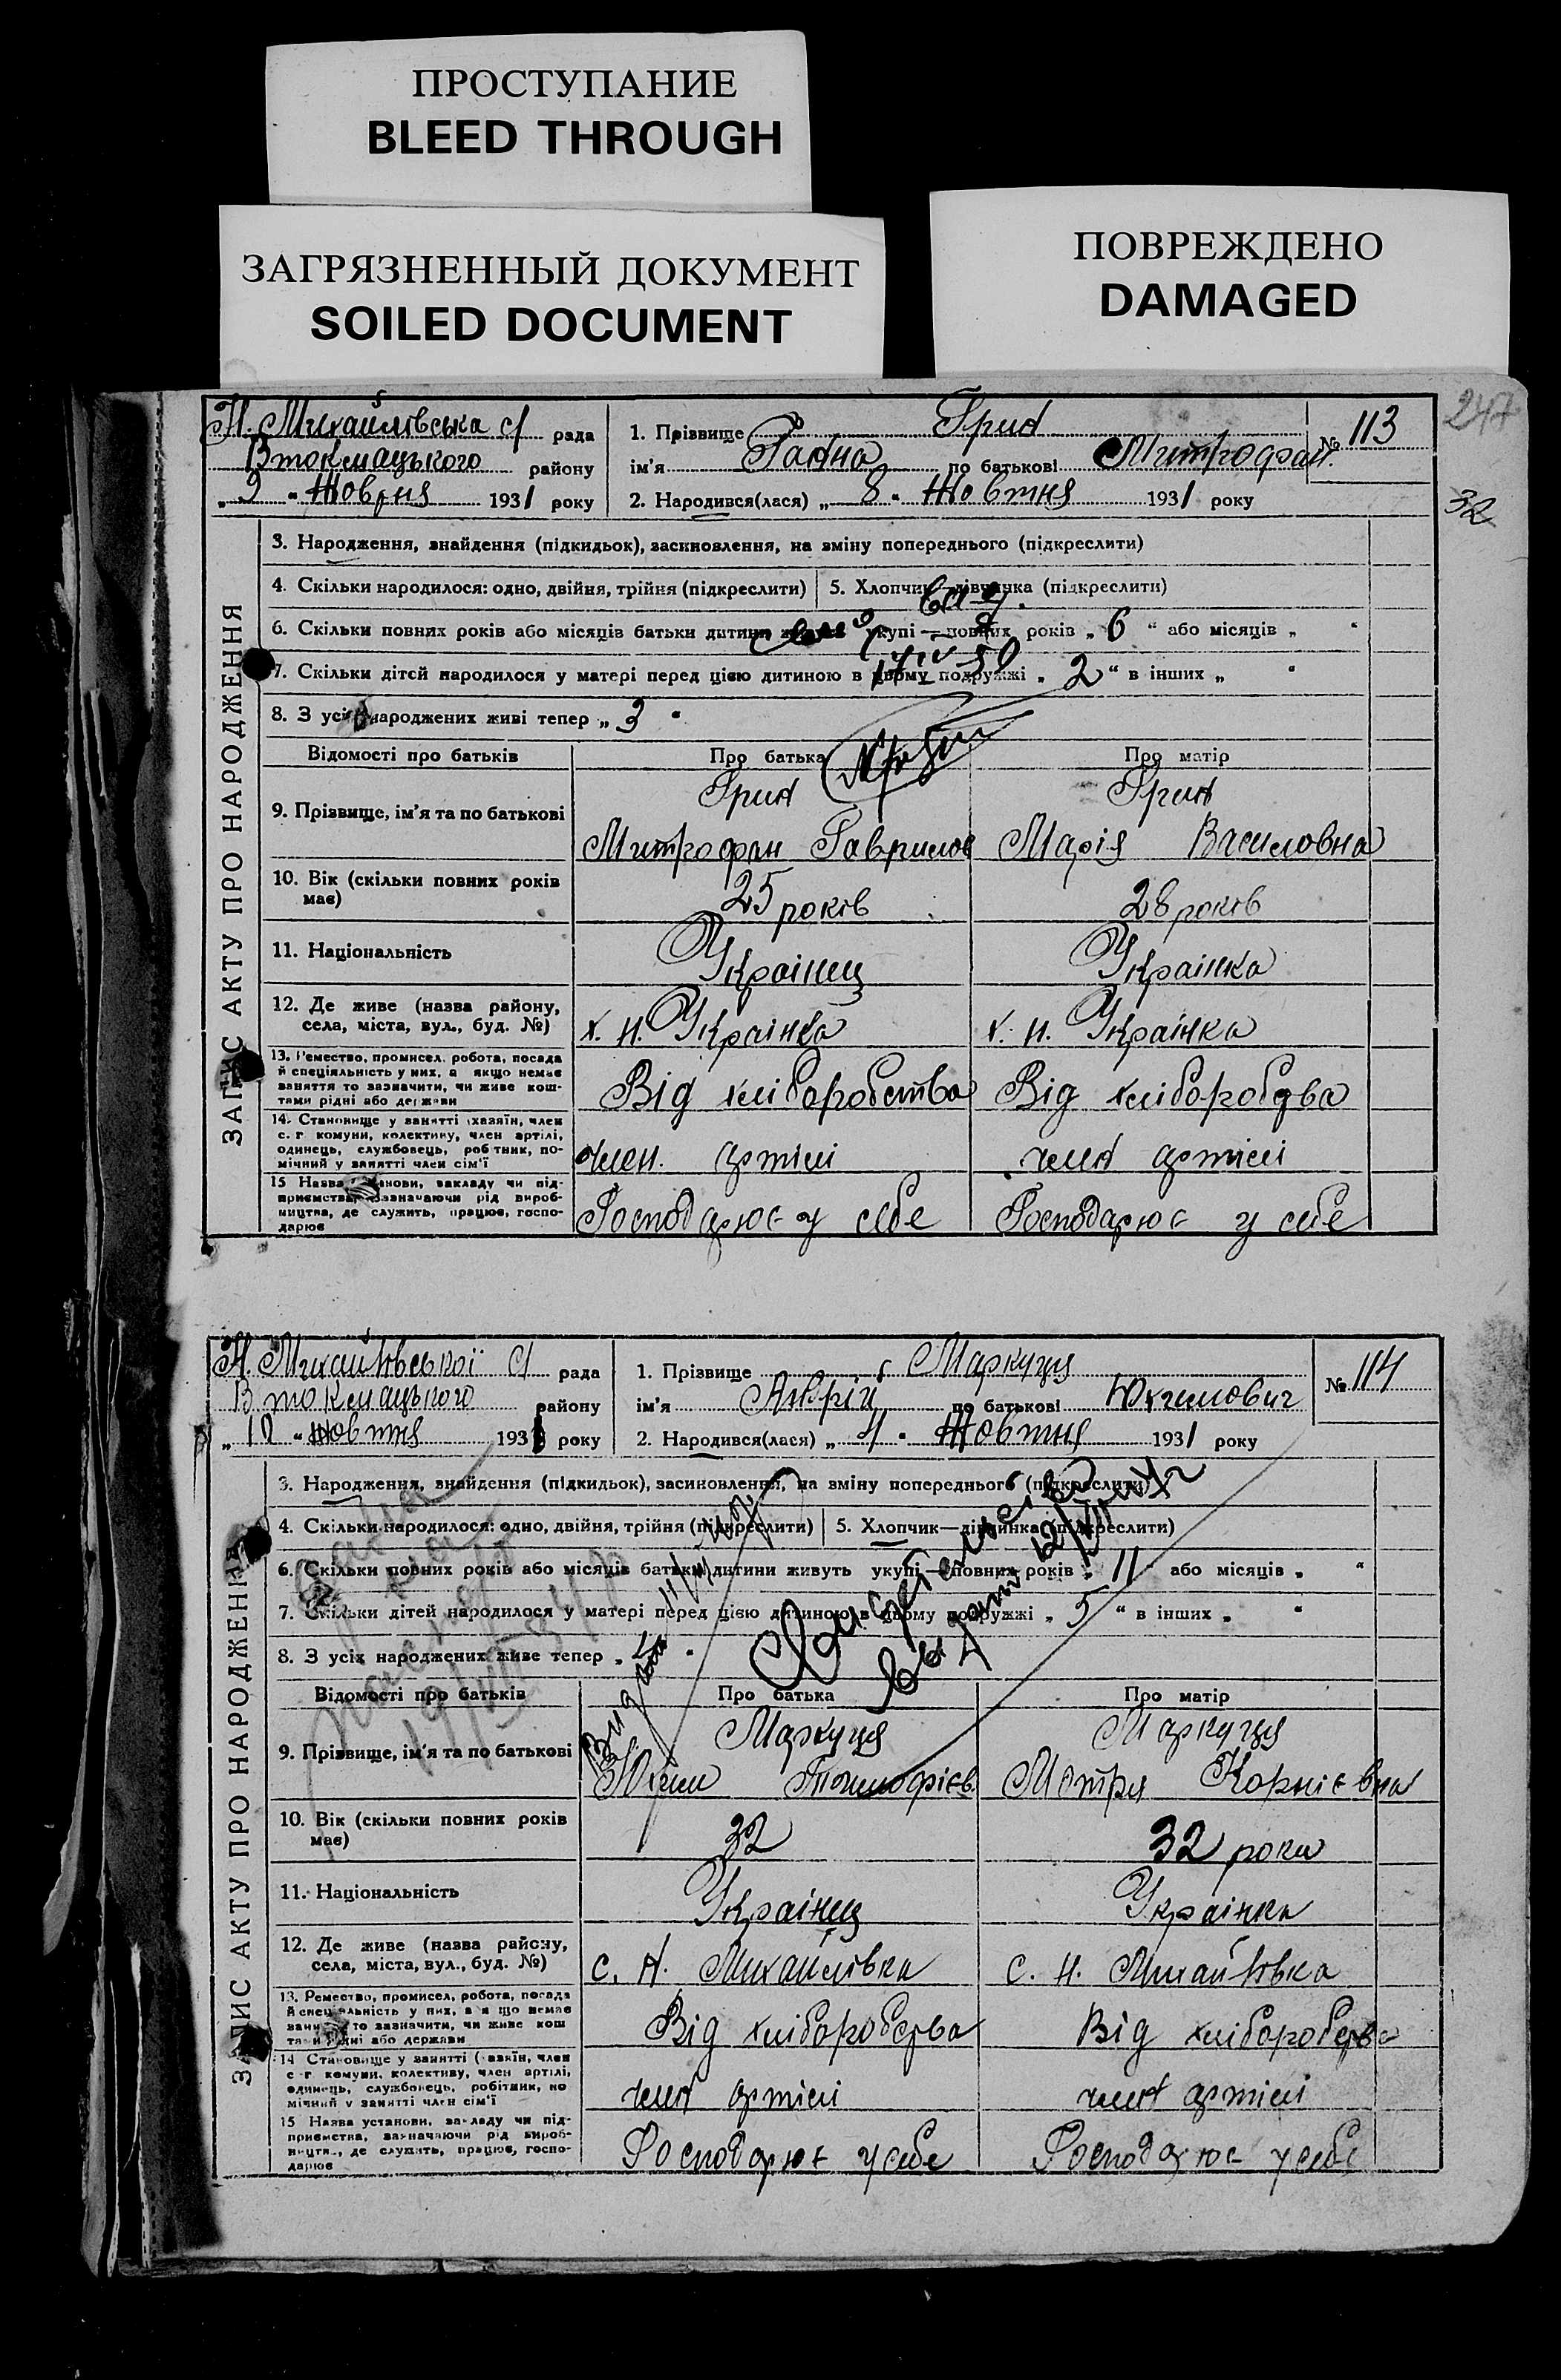 ПРОСТУПАНИЕ
BLEED THROUGH
ЗАГРЯЗНЕННЫЙ ДОКУМЕНТ
SOILED DOCUMENT
ПОВРЕЖДЕНО
DAMAGED
247
32
ЗАПИС АКТУ ПРО НАРОДЖЕННЯ
Н. Михайлівська с/ рада
Втокмацького району
„9“ Жовтня 1931 року
1. Прізвище Грин
№ 113
ім'я по батькові Митрофан.
2. Народився(лася) „8“ Жовтня 1931 року
3. Народження, знайдення (підкидьок), засиновлення, на зміну попереднього (підкреслити)
4. Скільки народилося: одно, двійня, трійня (підкреслити)
5. Хлопчик—дівчинка (підкреслити)
6. Скільки повних років або місяців батьки дитини живуть укупі—повних років „6“ або місяців „ “
7. Скільки дітей народилося у матері перед цією дитиною в цьому подружжі „2“ в інших „ “
8. З усіх народжених живі тепер „3“
Відомості про батьків Про батька Про матір
9. Прізвище, ім'я та по батькові
Грин
Митрофан Гаврилов
Грин
Марія Василовна
10. Вік (скільки повних років має)
25 років
28 років
11. Національність
Украінец
Украінка
12. Де живе (назва району,
села, міста, вул., буд. №)
х. н. Украінка
х. н. Украінка
13. Ремество, промисел, робота, посада
й спеціяльність у них, а якщо немає
заняття то зазначити, чи живе кош-
тами рідні або держави
Від хліборобства
Від хліборобства
14. Становище у занятті (хазяїн, член
с.-г. комуни, колективу, член артілі,
одинець, службовець, робітник, по-
мічний у занятті член сім'ї
член. артілі
член артілі
15 Назва установи, закладу чи під-
приємства, зазначаючи рід вироб-
ництва, де служить, працює, госпо-
дарює
Господарює у себе
Господарює у себе
ЗАПИС АКТУ ПРО НАРОДЖЕННЯ
Н. Михайловської с/ рада
Втокмацького району
„10“ Жовтня 1931 року
1. Прізвище Маркуця
№ 114
ім'я Андрій по батькові Юхимович
2. Народився(лася) „4“ Жовтня 1931 року
3. Народження, знайдення (підкидьок), засиновлення, на зміну попереднього (підкреслити)
4. Скільки народилося: одно, двійня, трійня (підкреслити)
5. Хлопчик—дівчинка (підкреслити)
6. Скільки повних років або місяців батьки дитини живуть укупі—повних років „11“ або місяців „ “
7. Скільки дітей народилося у матері перед цією дитиною в цьому подружжі „5“ в інших „ “
8. З усіх народжених живе тепер
Відомості про батьків Про батька Про матір
9. Прізвище, ім'я та по батькові
Маркуця
Юхим
Маркуця
Мотря Корнієвна
10. Вік (скільки повних років має)
32
32 роки
11. Національність
Украінец
Украінка
12. Де живе (назва району,
села, міста, вул., буд. №)
с. Н. Михайлівка
с. Н. Михайловка
13. Ремество, промисел, робота, посада
й спеціяльність у них, а якщо немає
заняття то зазначити, чи живе кош
тами рідні або держави
Від хліборобства
Від хліборобства
14 Становище у занятті (хазяїн, член
с-г комуни, колективу, член артілі,
одинець, службовець, робітник, по
мічний у занятті член сім'ї
член артілі
член артілі
15 Назва установи, закладу чи під-
приємства, зазначаючи рід вироб-
ництва, де служить, працює, госпо-
дарює
Господарює у себе
Господарює у себе